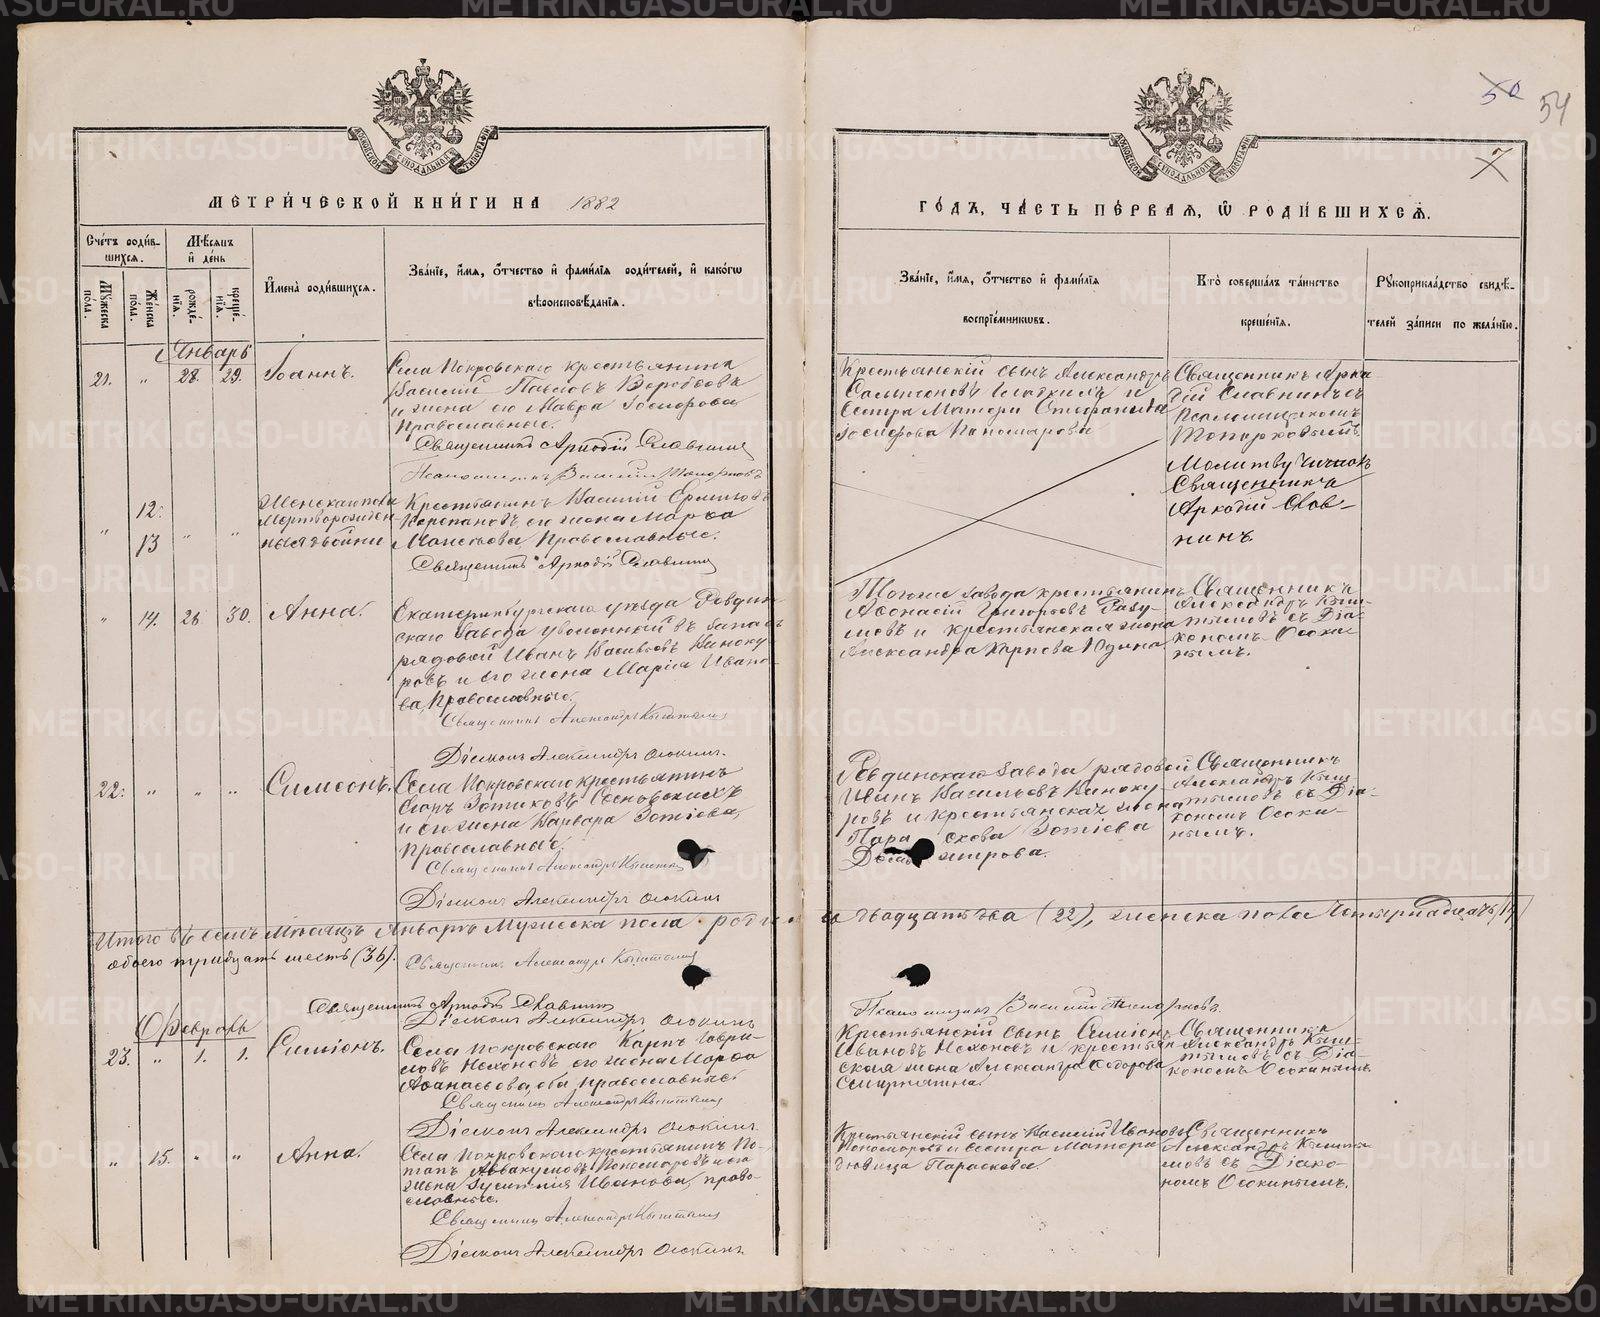 METRIKI.GASO-URAL.RU
50
54
7
МЕТРИ́ЧЕСКОЙ КНИ́ГИ НА 1882
ГО́ДЪ, ЧА́СТЬ ПЕ́РВАЯ, Ѡ РОДИ́ВШИХСЯ.
Сче́тъ роди́в-
шихся.
Мѣ́сяцъ
и҆ де́нь
Мꙋ́жеска
по́ла.
Же́нска
по́ла.
рожде́-
нїя.
креще́-
нїя.
И҆мена̀ роди́вшихся.
Зва́нїе, и҆́мя, ѻ҆́тчество и҆ фами́лїя роди́телей, и҆ како́гѡ
вѣроисповѣ́данїя.
Зва́нїе, и҆́мя, ѻ҆́тчество и҆ фами́лїя
воспрїе́мниковъ.
Кто̀ соверша́лъ та́инство
креще́нїя.
Рꙋкоприкла́дство свидѣ́-
телей за́писи по жела́нїю.
Январь
21. " 28. 29. Іоаннъ.
Села Покровскаго крестьянинъ
Василій Павловъ Воробьовъ
и жена его Мавра Іосифова
православные.
Священникъ Аркадій Славнинъ
Псаломщикъ Василій Топорковъ
Крестьянскій сынъ Александръ
Сестра Матери Стефанида
Іосифова Пономарова
Священникъ Арка-
дій Славнинъ съ
Псаломщикомъ
Топорковымъ.
" 12. 13 " "
Женскаго пола
Мертворожден-
ныя двойни
Крестьянинъ Василій
его жена Марѳа
Моисеева, Православные.
Священникъ Аркадій Славнинъ
Молитву читалъ
Священникъ
Аркадій Слав-
нинъ.
" 14. 28 30. Анна.
Екатеринбургскаго уѣзда Ревдин-
скаго завода уволенный въ запасъ
рядовой Иванъ Васильевъ Виноку-
ровъ и его жена Марія Ивано-
ва, Православные.
Священникъ Александръ Кыштымовъ
Діаконъ Александръ Осокинъ.
Тогоже завода крестьянинъ
Аѳонасій Григорьевъ Разу-
мовъ и крестьянская жена
Александра Карпова Юдина
Священникъ
Александръ Кыш-
тымовъ съ Діа-
кономъ Осоки-
нымъ.
22. " " " Симеонъ.
Села Покровскаго крестьянинъ
Егоръ Зотиковъ Сосновскихъ
и его жена Варвара Зотіева,
православные.
Священникъ Александръ Кыштымовъ
Діаконъ Александръ Осокинъ
Ревдинскаго завода рядовой
Иванъ Васильевъ Виноку-
ровъ и крестьянская жена
Параскова Зотіева
Священникъ
Александръ Кыш-
тымовъ съ Діа-
кономъ Осоки-
нымъ.
Итого въ семъ Мѣсяцѣ Январѣ Мужеска пола двадцать два (22), женска пола Четырнадцать (14)
обоего тридцать шесть (36).
Священникъ Александръ Кыштымовъ
Священникъ Аркадій Славнинъ
Діаконъ Александръ Осокинъ
Псаломщикъ Василій Топорковъ.
Февраль
23. " 1. 1. Симіонъ.
Села Покровскаго Карпъ Гаври-
ловъ Нехоновъ, его жена Марѳа
Аѳанасьова, оба православные.
Священникъ Александръ Кыштымовъ
Діаконъ Александръ Осокинъ.
Крестьянскій сынъ Симіонъ
Ивановъ Нехоновъ и крестьян-
ская жена Александра Ѳедорова
Смирнягина.
Священникъ
Александръ Кыш-
тымовъ съ Діа-
кономъ Осокинымъ.
" 15. " " Анна.
Села Покровскаго крестьянинъ По-
тапъ Аввакумовъ Пономаровъ и его
жена Іустинія Иванова, право-
славные.
Священникъ Александръ Кыштымовъ
Діаконъ Александръ Осокинъ.
Крестьянскій сынъ Василій Ивановъ
Пономаровъ и сестра Матери
дѣвица Параскова.
Священникъ
Александръ Кышты-
мовъ съ Діако-
номъ Осокинымъ.